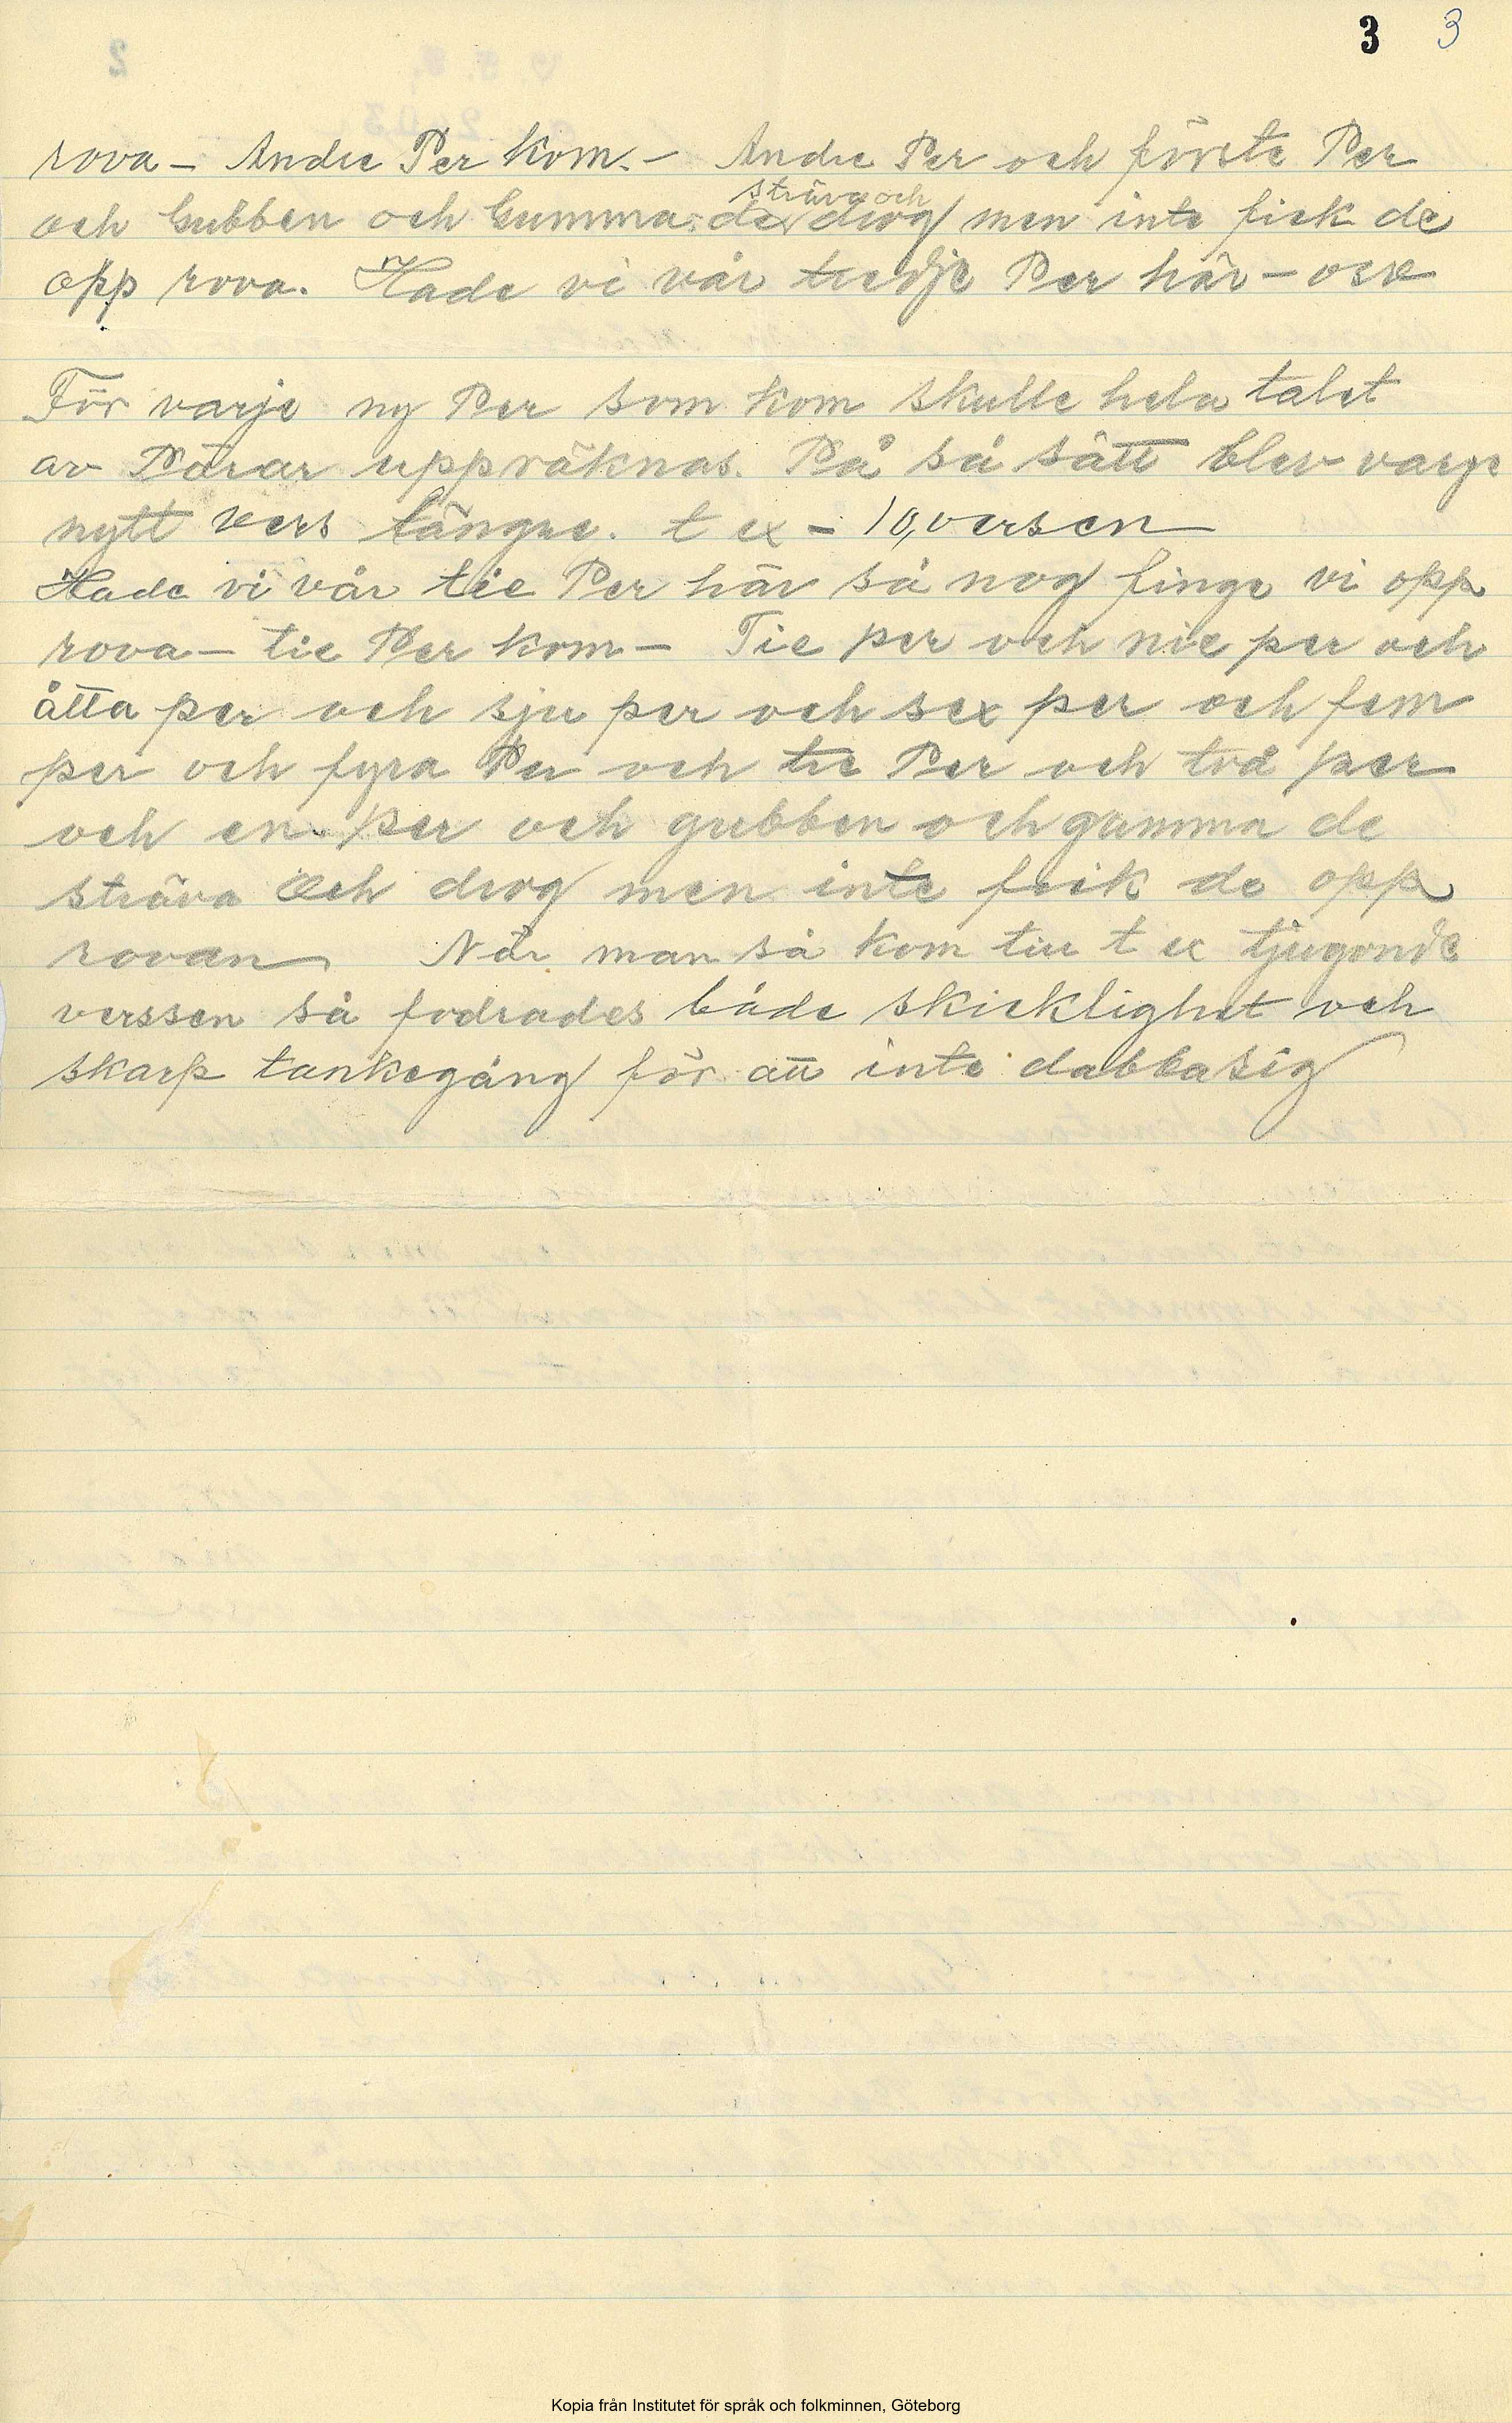 3 3
rova – Andre Per kom. – Andre Per och förste Per
sträva och
och Gubben och Gumma de drog men inte fick de
opp rova. Hade vi vår tredje Per här – osv
För varje ny Per som kom skulle hela talet
av Pärar uppräknas. På så sätt blev varje
nytt vers längre. t ex – 10,versen
Hade vi vår tie Per här så nog finge vi opp
rova – tie Per kom – Tie per och nie per och
åtta per och sju per och sex per och fem
per och fyra Per och tre Per och två per
och en per och gubben och gumma de
sträva och drog men inte feck de opp
rovan När man så kom till t ex tjugonde
verssen så fodrades både skicklighet och
skarp tankegång för att inte dabba sig
Kopia från Institutet för språk och folkminnen, Göteborg